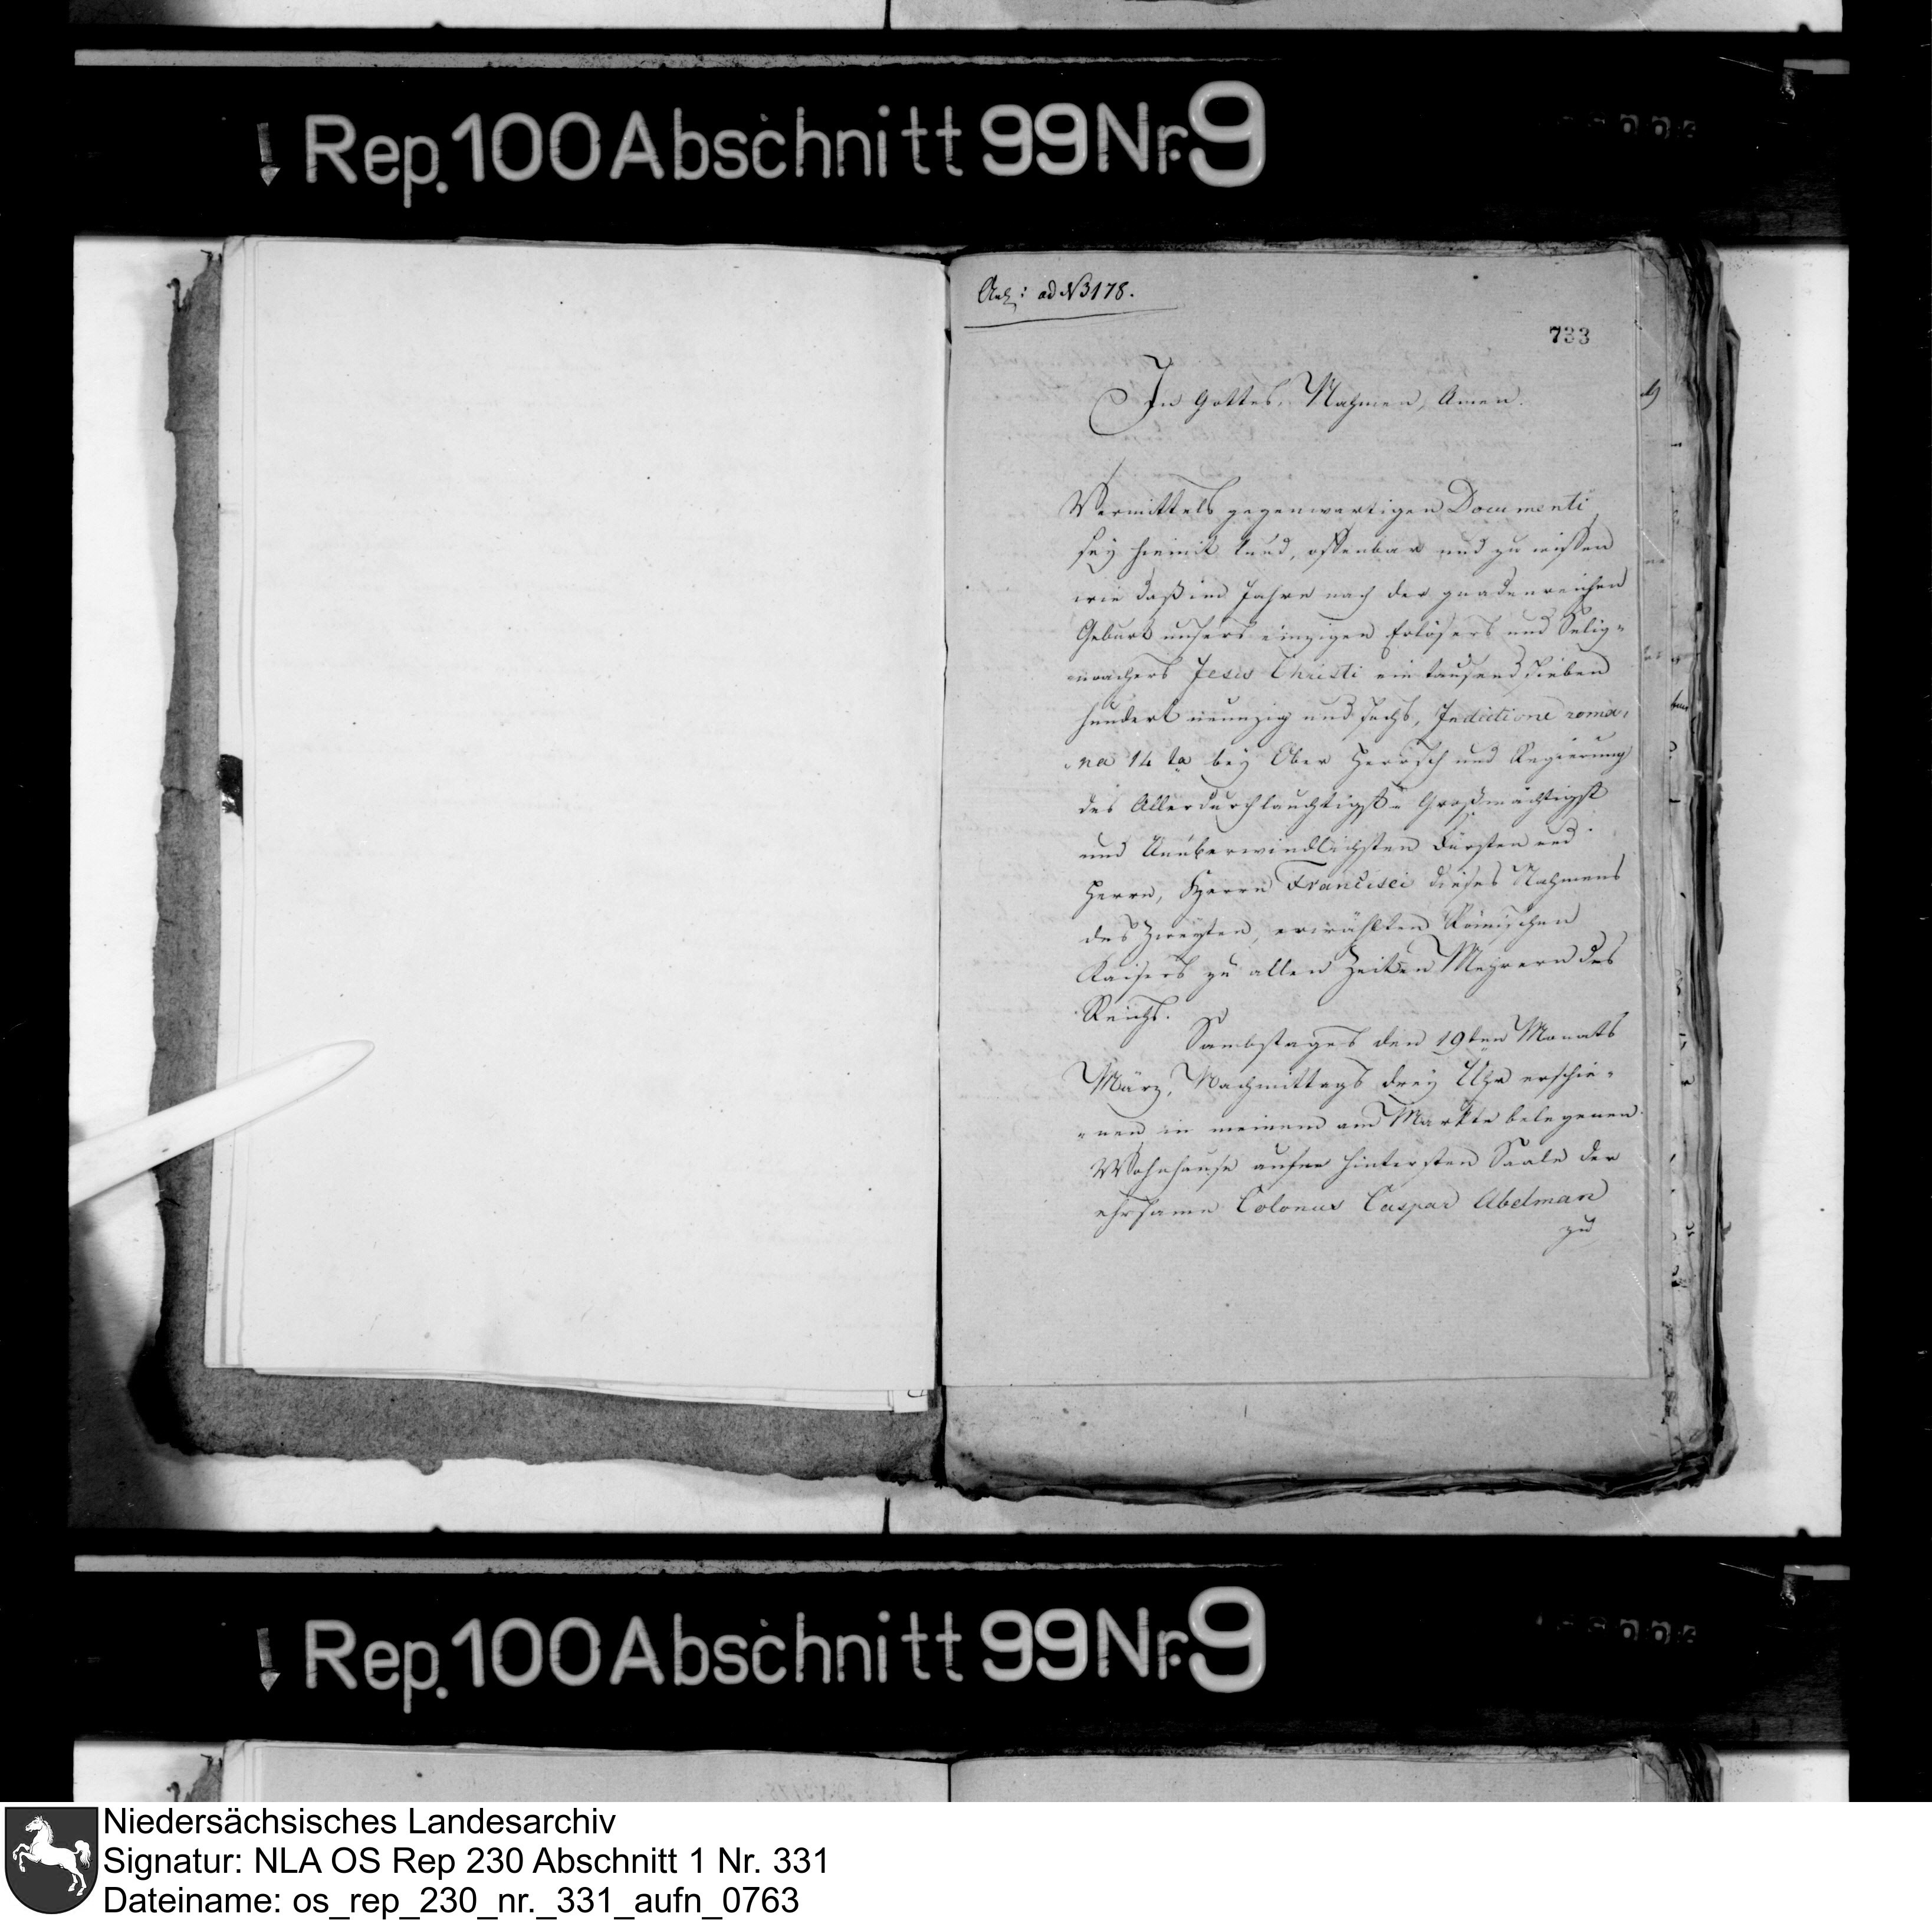 Rep. 100 Abschnitt 99 Nr. 9
ad N 3178.
733
In Gottes Nahmen, Amen.
Vermittels gegenwartigen Documenti
sey hiemit kund, offenbar und zu wissen
wie daß im Jahre nach der gnadenreichen
Geburt unsers einzigen Erlösers und Selig=
machers Jesu Christi ein tausend sieben
hundert neunzig und sechs, Indictione roma=
na 14ta bey Ober Herrsch und Regierung
des Allerdurchlauchtigst= Großmächtigst
und Unüberwindlichsten Fürsten und
Herrn, Herrn Francisci dieses Nahmens
des Zweyten, erwählten Römischen
Kaisers zu allen Zeiten Mehrern des
Reichs.
Sambstages den 19ten Monats
März, Nachmittags drey Uhr erschie=
=nen in meinem am Markte belegenen
Wohnhause aufm hintersten Saale der
ehrsame Colonus Caspar Abelman
zu
Rep. 100 Abschnitt 99 Nr. 9
Niedersächsisches Landesarchiv
Signatur: NLA OS Rep 230 Abschnitt 1 Nr. 331
Dateiname: os_rep_230_nr._331_aufn_0763